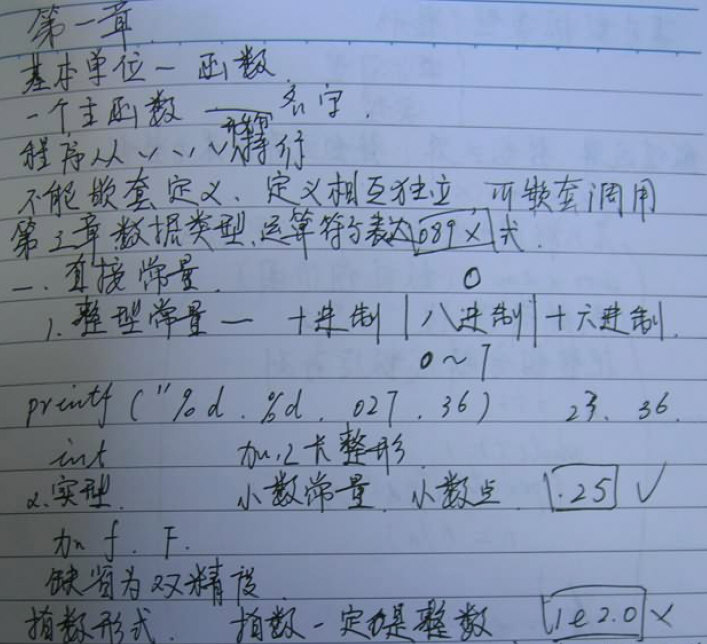 第一章
基本单位一函数.
一个主函数 —— 名字.
程序从 行
不能嵌套定义、定义相互独立,可嵌套调用
第二章 数据类型、运算符与表达 089 × 式.
一. 直接常量. 0
1. 整型常量 — 十进制 | 八进制 | 十六进制.
0～7
printf ("%d . %d . 027 . 36) 23. 36.
int 加 长整形.
2. 实型. 小数常量. 小数点 .25 √
加 f . F.
缺省为双精度.
指数形式. 指数一定是整数 1e2.0 ×